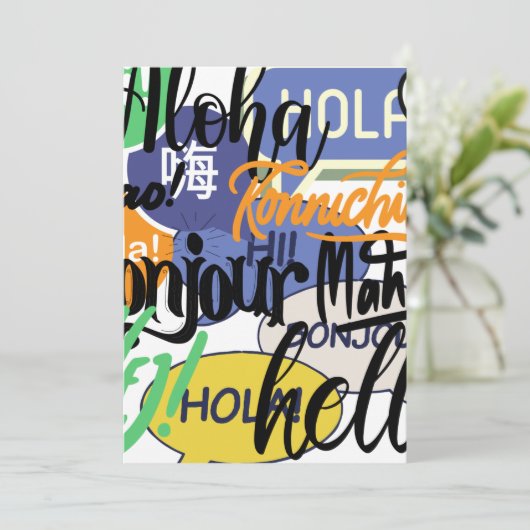 Aloha
HOLA
嗨
ao!
Konnichi
la!
HI!
onjour
Mah
BONJOU
EJ!
HOLA!
hell